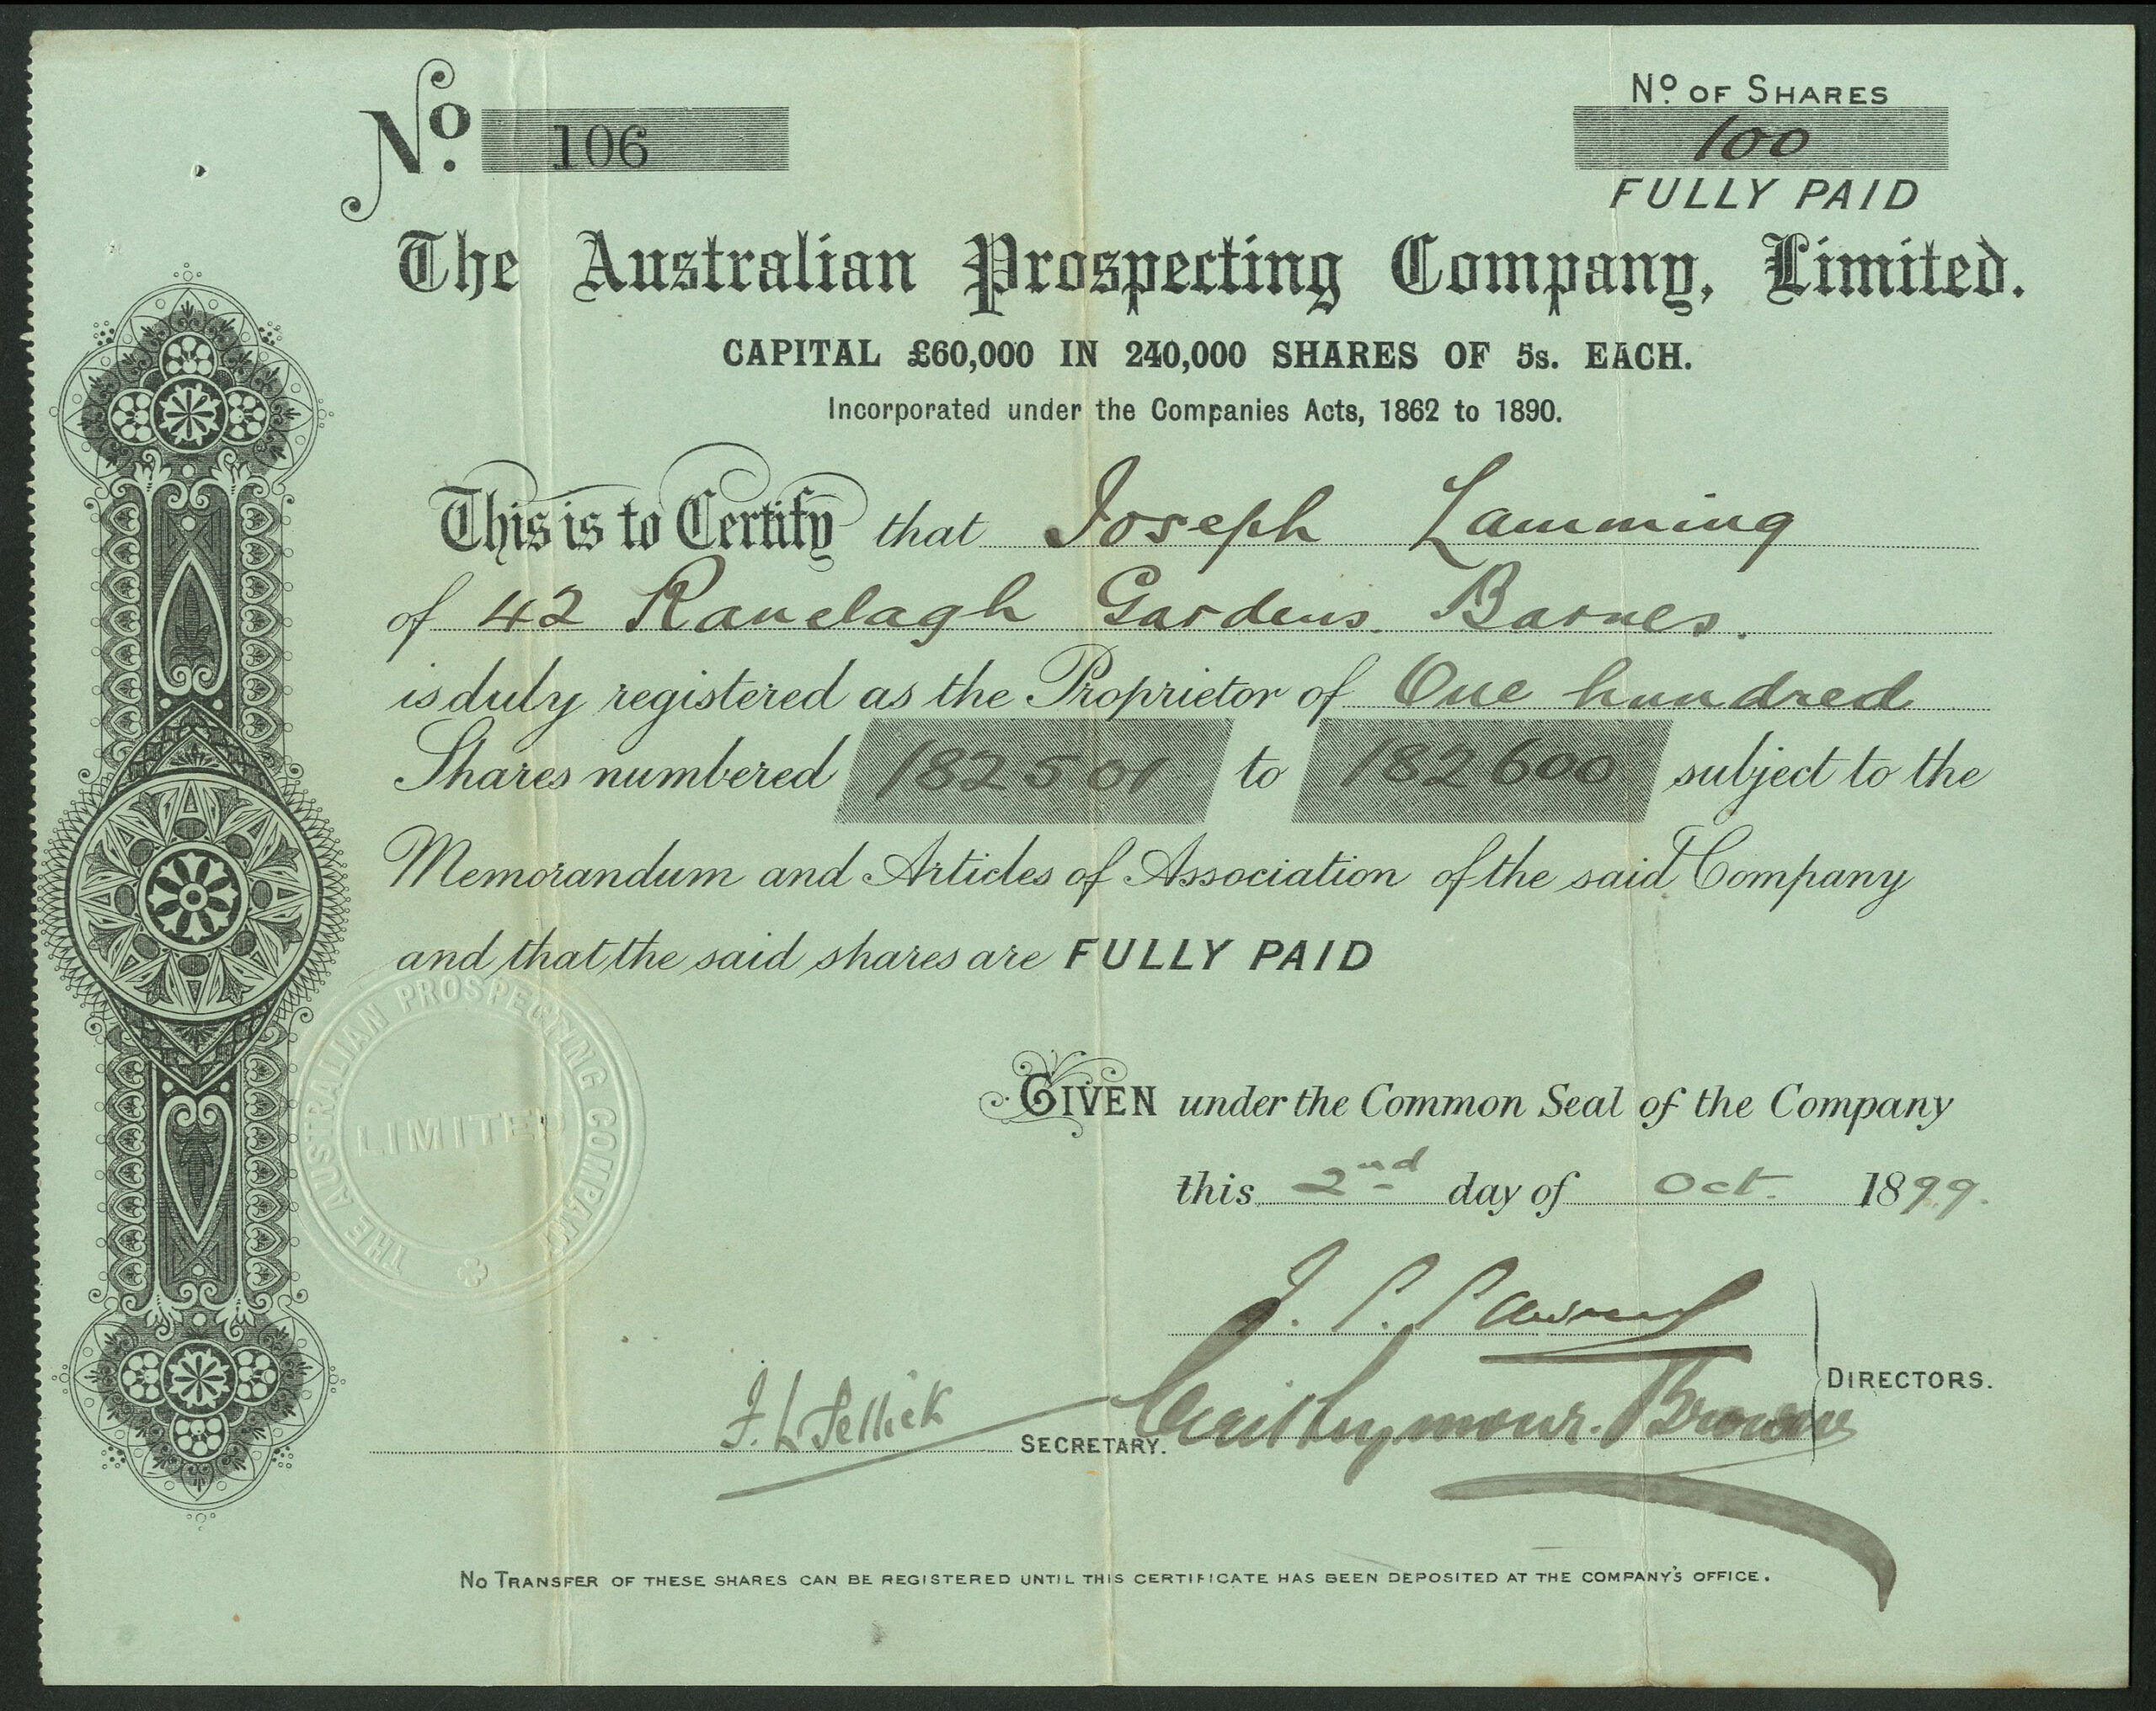 No. 106
No. OF SHARES
100
FULLY PAID
The Australian Prospecting Company, Limited.
CAPITAL £60,000 IN 240,000 SHARES OF 5s. EACH.
Incorporated under the Companies Acts, 1862 to 1890.
This is to Certify that Joseph Lamming
of 42 Ranelagh Gardens. Barnes.
is duly registered as the Proprietor of One hundred
Shares numbered 182501 to 182600 subject to the
Memorandum and Articles of Association of the said Company
and that the said shares are FULLY PAID
THE AUSTRALIAN PROSPECTING COMPANY
LIMITED
GIVEN under the Common Seal of the Company
this 2nd day of Oct. 1899.
J. P.
DIRECTORS.
Seymour-Browne
SECRETARY.
NO TRANSFER OF THESE SHARES CAN BE REGISTERED UNTIL THIS CERTIFICATE HAS BEEN DEPOSITED AT THE COMPANY'S OFFICE.